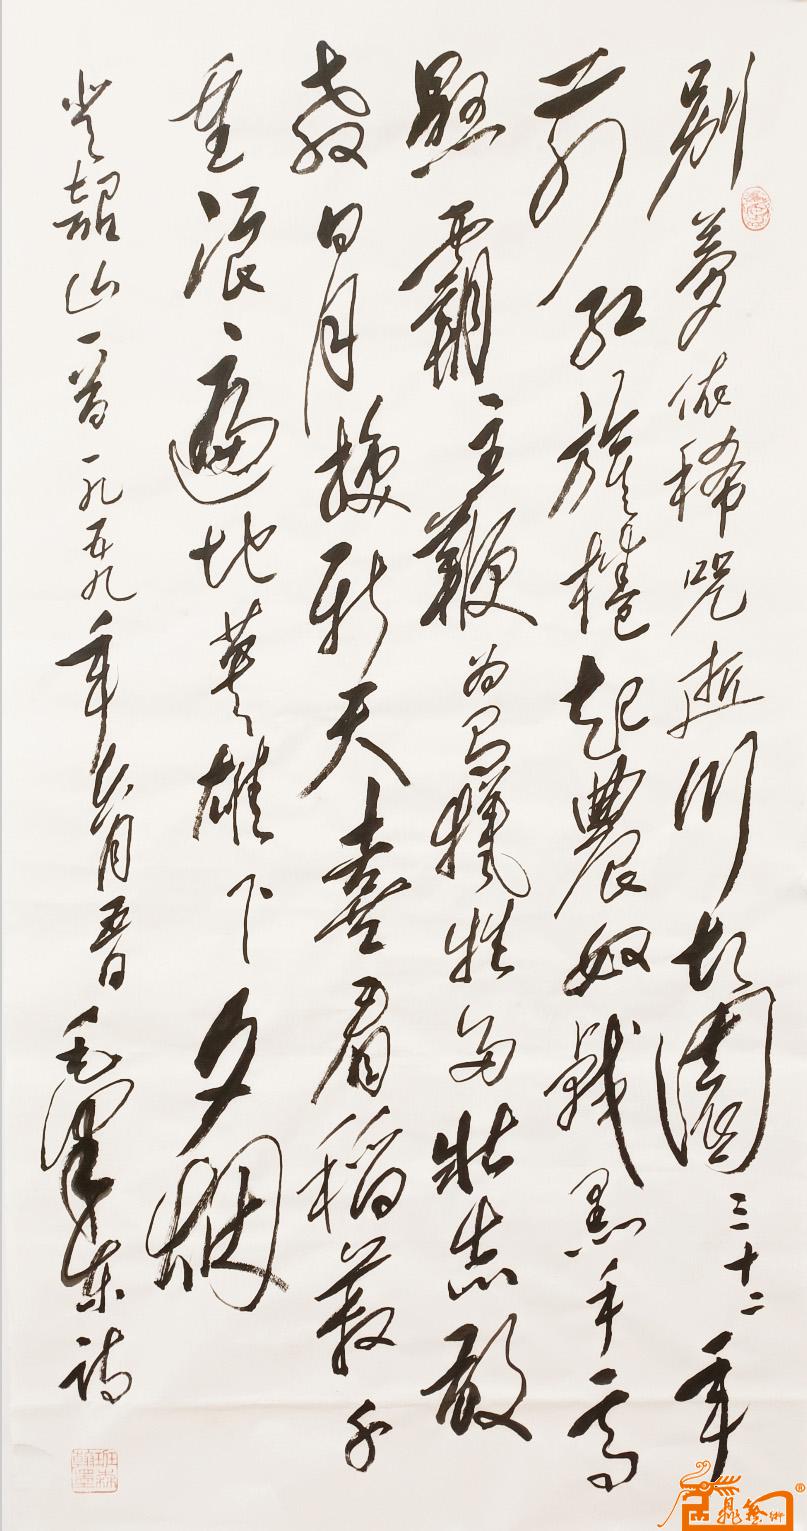 别梦依稀咒逝川故園三十二年
前红旗捲起農奴戟黑手高
懸霸主鞭为有犧牲多壮志敢
教日月换新天喜看稻菽千
重浪遍地英雄下夕烟
登韶山一首一九五九年六月毛泽东诗